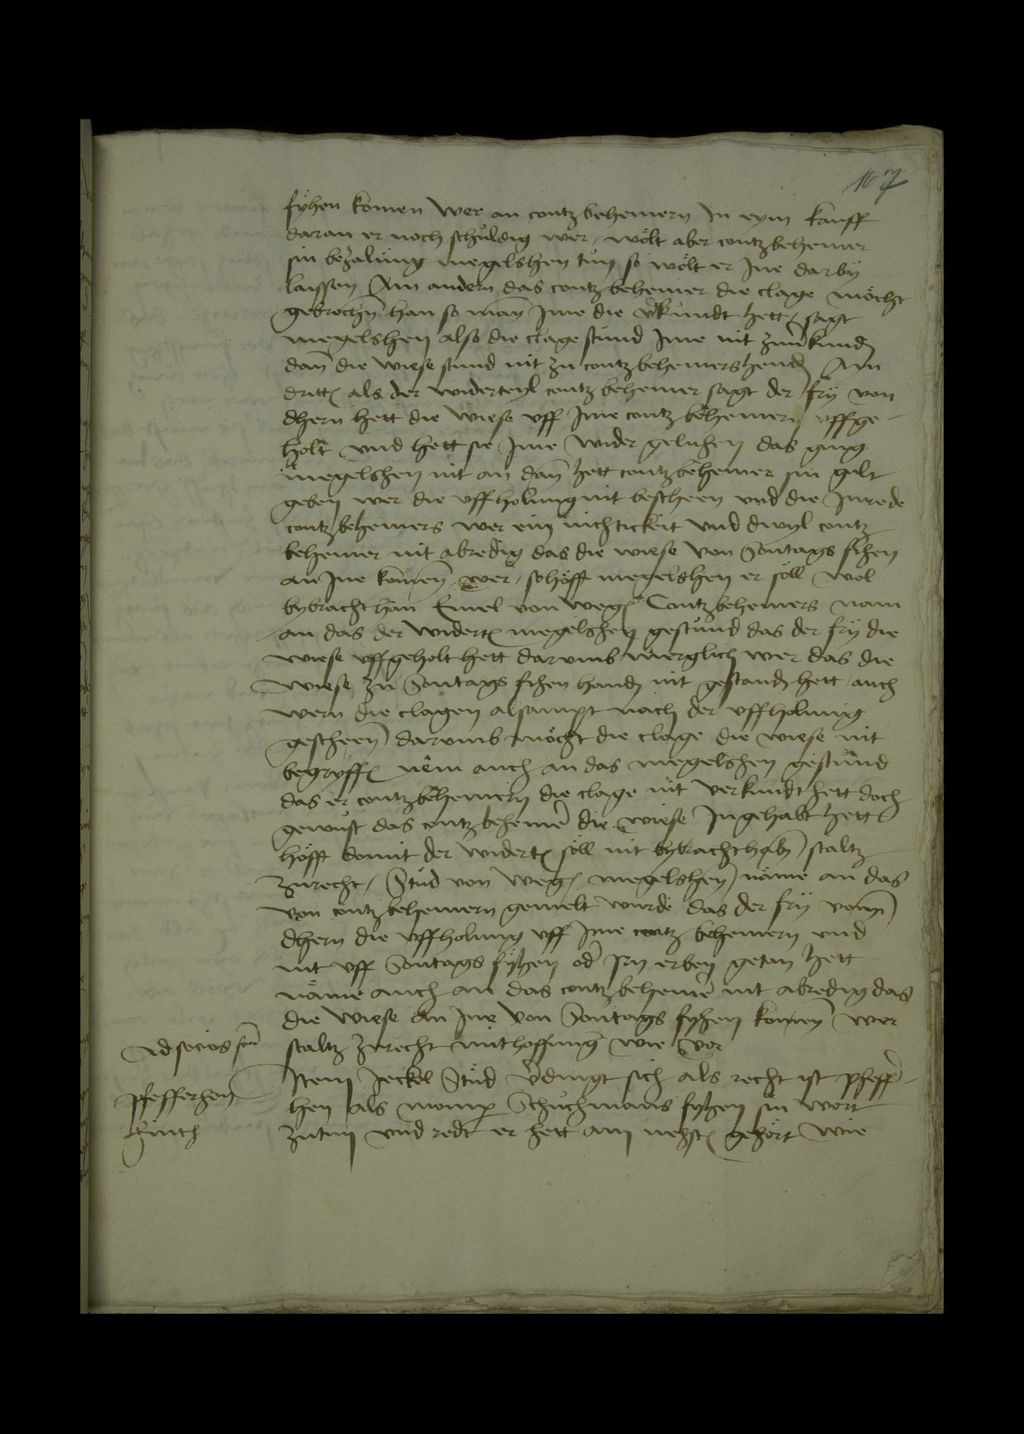 167
fyhen komen wer an contz behemern in eym kauff
daran er noch schuldig wer, wolt aber contz behemer
sin bezalung megelshen tun so wolt er ine dar by
laissen Am andern das contz behemer die clage mocht
gebrochen han so man ime die verkundt hett, sagt
megelshen also die clage stund ime nit
dan die wiese stund nit zu contz behemers henden Am
dritten als der widerteyl contz behemer sagt der fry von
dhern hett die wiese uff ime contz behemern uffge-
holt und hett sie ime wider geluhen das ging
megelshen nit an dan hett contz behemer sin gult
geben wer die uffholung nit bescheen und die Inrede
contz behemers wer ein nichtickeit und dwyl contz
behemer nit abredig das die wiese von Sontags fihen
an ine komen wer, so hofft megelshen er soll wol
bybracht han Emel von wegen Contz behemers nam
an das der widerten megelshen gestund das der fry die
wiese uffgeholt hett darumb merglich wer das die
wiese zu Sontags fihen handen nit gestanden hett auch
wern die clagen alsampt nach der uffholung
gescheen darumb mocht die clage die wiese nit
begryffen nem auch an das megelshen gestund
das er contz behemern die clage nit verkundt hett doch
gewust das contz behemer die wiese Ingehabt hett
hofft domit der widerten soll nit bybracht haben staltz
zurecht, Stud von wegen megelshen name an das
von contz behemern gemelt wurde das der fry vonn
dhern die uffholung uff ime contz behemern und
nit uff Sontags fyhen oder irn erben getan hett
name auch an das contz behemer nit abredig das
die wiese an ine von Sontags fyhen komen wer
staltz zurecht mit hoffnung wie vor
Ad socios
pfefferhen
Item Jeckel Stud verdingt sich als recht ist pfeffer-
hen als momper Schuchmans fyhen sin wort
zutun und redt er hett am nehsten gehort wie